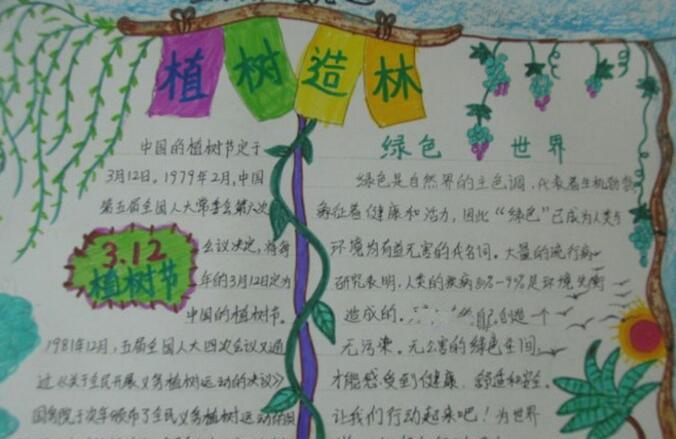 植树造林
中国的植树节定于
3月12日。1979年2月,中国
第五届全国人大常委会第六次
会议决定,将每
年的3月12日定为
中国的植树节。
3.12
植树节
1981年12月,五届全国人大四次会议又通
过《关于全民开展义务植树运动的决议》
国务院于次年颁布了全民义务植树运动的
绿色 世界
绿色是自然界的主色调,代表着生机勃勃
象征着健康和活力,因此“绿色”已成为人类与
环境为有益无害的代名词。大量的流行病
研究表明,人类的疾病 %-9%是环境失衡
造成的。 创造一个
无污染。无公害的绿色空间,
才能感受到健康、舒适和安全。
让我们行动起来吧!为世界